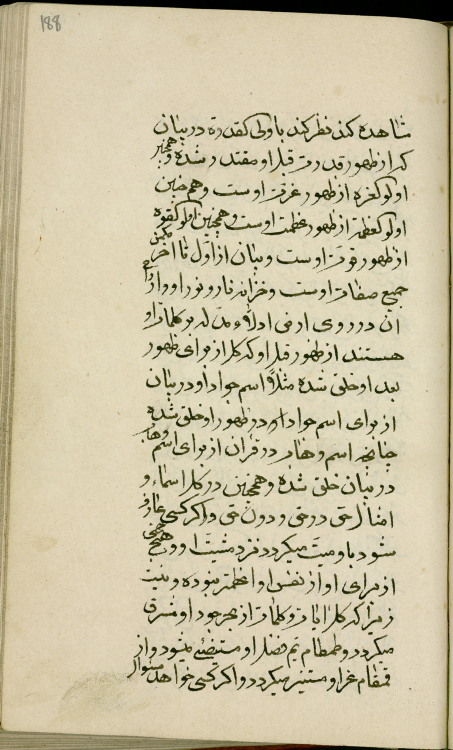 188
مشاهده کند نظر کند باولی کقدرة در بیان
که از ظهور قدرت قبل او مقتدر شده و همچنین
اولو کعزة از ظهور عزت اوست و همچنین
اولو کعظمة از ظهور عظمت اوست و همچنین اولو کقوه
از ظهور قوت اوست و بیان از اول تا آخر
جمیع صفات اوست و خزانه نار و نور او
آن در روی ارض ادلاء بر کلمات او
هستند از ظهور قبل او که کل از برای ظهور
بعد او خلق شده مثلا اسم جواد او در بیان
از برای اسم جواد او در ظهور او خلق شده
چنانچه اسم وهاب در قرآن از برای اسم وهاب
در بیان خلق شده و همچنین در کل اسماء و
امثال حتی در حق و دون حق و اگر کسی عارف
شود باو میت میگردد نزد مشیت او و هیچ
از برای او از نفس او اعظمتر نبوده و نیست
زیرا که کل آیات و کلمات از بحر جود او مشرق
میگردد و طمطام یم فضل او مستضیء میشود و از
قمقام عز او مستنیر میگردد و اگر کسی خواهد